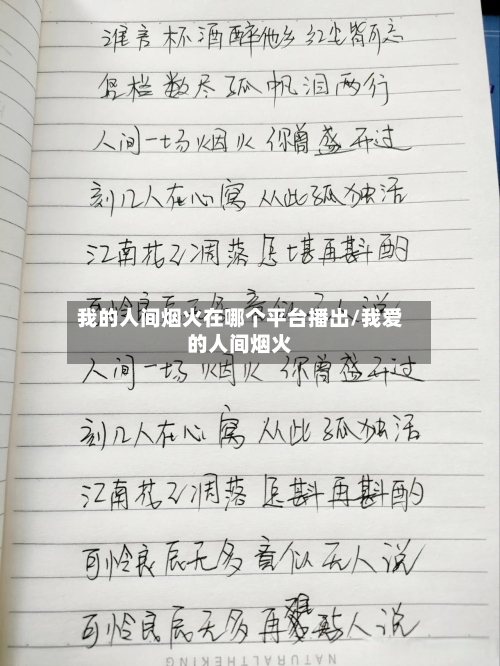 谁言杯酒醉他乡 红尘皆可忘
凭栏数尽孤帆泪两行
人间一场烟火 你曾盛开过
刻几人在心窝 从此孤独活
江南花已凋落 怎堪再斟酌
我的人间烟火在哪个平台播出/我爱
的人间烟火
人间一场烟火 你曾盛开过
刻几人在心窝 从此孤独活
江南花已凋落 怎 再斟酌
可怜良辰无多 竟似无人说
可怜良辰无多 再 人说
NATURALTHEKING